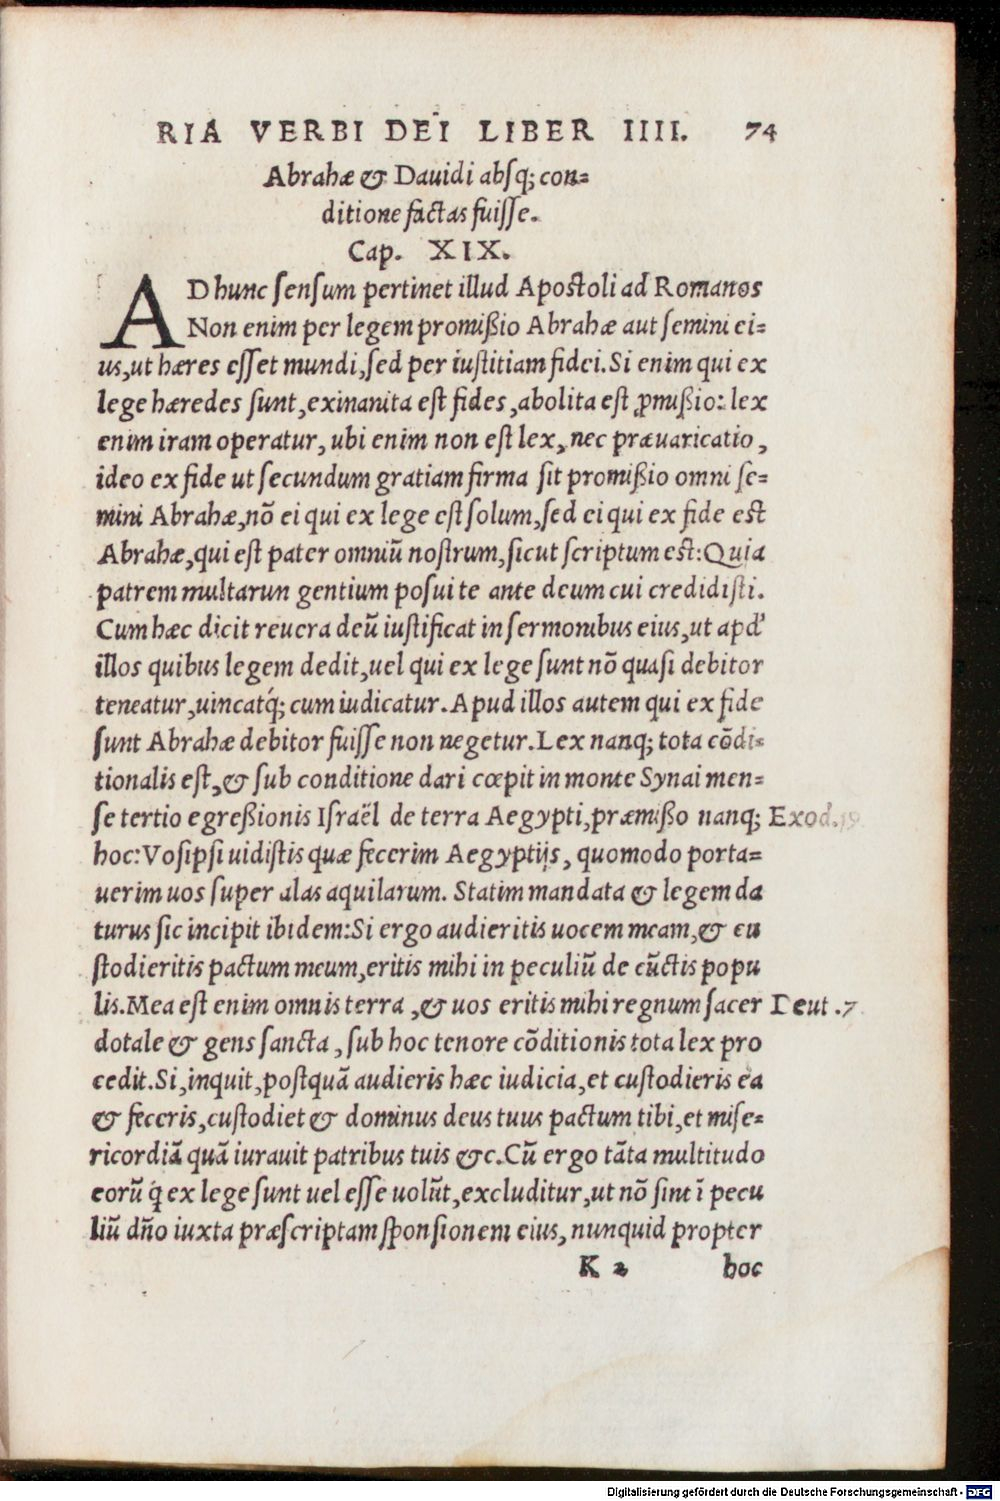 RIA VERBI DEI LIBER IIII. 74
Abrahæ & Dauidi absq; con=
ditione factas fuisse.
Cap. XIX.
AD hunc sensum pertinet illud Apostoli ad Romanos
Non enim per legem promißio Abrahæ aut semini ei=
us,ut hæres esset mundi,sed per iustitiam fidei.Si enim qui ex
lege hæredes sunt,exinanita est fides,abolita est ꝓmißio: lex
enim iram operatur, ubi enim non est lex, nec præuaricatio,
ideo ex fide ut secundum gratiam firma sit promißio omni se=
mini Abrahæ,nō ei qui ex lege est solum,sed ei qui ex fide est
Abrahæ,qui est pater omniū nostrum,sicut scriptum est:Quia
patrem multarun gentium posui te ante deum cui credidisti.
Cum hæc dicit reuera deū iustificat in sermonibus eius,ut apd'
illos quibus legem dedit,uel qui ex lege sunt nō quasi debitor
teneatur,uincatq́; cum iudicatur.Apud illos autem qui ex fide
sunt Abrahæ debitor fuisse non negetur.Lex nanq; tota cōdi=
tionalis est,& sub conditione dari cœpit in monte Synai men=
se tertio egreßionis Israël de terra Aegypti,præmißo nanq; Exod.19
hoc:Vosipsi uidistis quæ fecerim Aegyptijs, quomodo porta=
uerim uos super alas aquilarum. Statim mandata & legem da
turus sic incipit ibidem:Si ergo audieritis uocem meam,& cu
stodieritis pactum meum,eritis mihi in peculiū de cūctis popu
lis.Mea est enim omnis terra ,& uos eritis mihi regnum sacer Deut .7
dotale & gens sancta, sub hoc tenore cōditionis tota lex pro
cedit.Si,inquit,postquā audieris hæc iudicia,et custodieris ea
& feceris,custodiet & dominus deus tuus pactum tibi,et mise=
ricordiā quā iurauit patribus tuis &c.Cū ergo tāta multitudo
eorū q́ ex lege sunt uel esse uolūt,excluditur,ut nō sint ī pecu
liū dño iuxta præscriptam sponsionem eius, nunquid propter
K 2 hoc
Digitalisierung gefördert durch die Deutsche Forschungsgemeinschaft - DFG